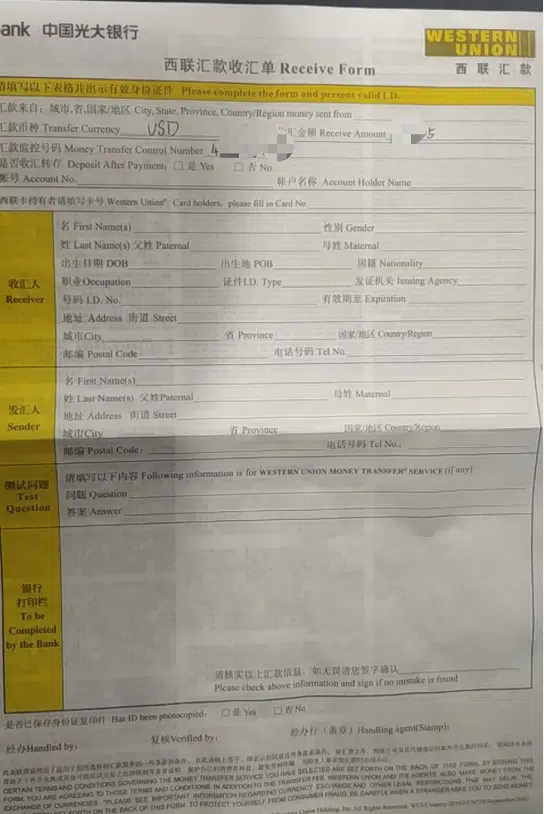 ank 中国光大银行
WESTERN
UNION
西联汇款
西联汇款收汇单 Receive Form
请填写以下表格并出示有效身份证件 Please complete the form and present valid I.D.
汇款来自：城市,省,国家/地区 City, State, Province, Country/Region money sent from
汇款币种 Transfer Currency USD 汇金额 Receive Amount 5
汇款监控号码 Money Transfer Control Number 4
是否收汇转存 Deposit After Payment: □ 是 Yes □ 否 No
帐号 Account No. 帐户名称 Account Holder Name
西联卡持有者请填写卡号 Western Union® Card holders, please fill in Card No.
收汇人
Receiver
名 First Name(s) 性别 Gender
姓 Last Name(s) 父姓 Paternal 母姓 Maternal
出生日期 DOB 出生地 POB 国籍 Nationality
职业Occupation 证件I.D. Type 发证机关 Issuing Agency
号码 I.D. No. 有效期至 Expiration
地址 Address 街道 Street
城市City 省 Province 国家/地区 Country/Region
邮编 Postal Code 电话号码 Tel No.
发汇人
Sender
名 First Name(s)
姓 Last Name(s) 父姓Paternal 母姓 Maternal
地址 Address 街道 Street
城市City 省 Province 国家/地区 Country/Region
邮编 Postal Code: 电话号码 Tel No.:
测试问题
Test
Question
请填写以下内容 Following information is for WESTERN UNION MONEY TRANSFER® SERVICE (if any)
问题 Question
答案 Answer
银行
打印栏
To be
Completed
by the Bank
请核实以上汇款信息，如无误请您签字确认
Please check above information and sign if no mistake is found
是否已保存身份证复印件 Has ID been photocopied: □ 是 Yes □ 否 No
经办Handled by: 复核Verified by: 经办行（盖章）Handling agent(Stamp):
CERTAIN TERMS AND CONDITIONS GOVERNING THE MONEY TRANSFER SERVICE YOU HAVE SELECTED ARE SET FORTH ON THE BACK OF THIS FORM. BY SIGNING THIS
FORM, YOU ARE AGREEING TO THOSE TERMS AND CONDITIONS. IN ADDITION TO THE TRANSFER FEE, WESTERN UNION AND ITS AGENTS ALSO MAKE MONEY FROM THE
EXCHANGE OF CURRENCIES. "PLEASE SEE IMPORTANT INFORMATION REGARDING CURRENCY EXCHANGE AND OTHER LEGAL RESTRICTIONS THAT MAY DELAY THE
SET FORTH ON THE BACK OF THIS FORM. TO PROTECT YOURSELF FROM CONSUMER FRAUD, BE CAREFUL WHEN A STRANGER ASKS YOU TO SEND MONEY
Union Holding, Inc. All Rights Reserved.